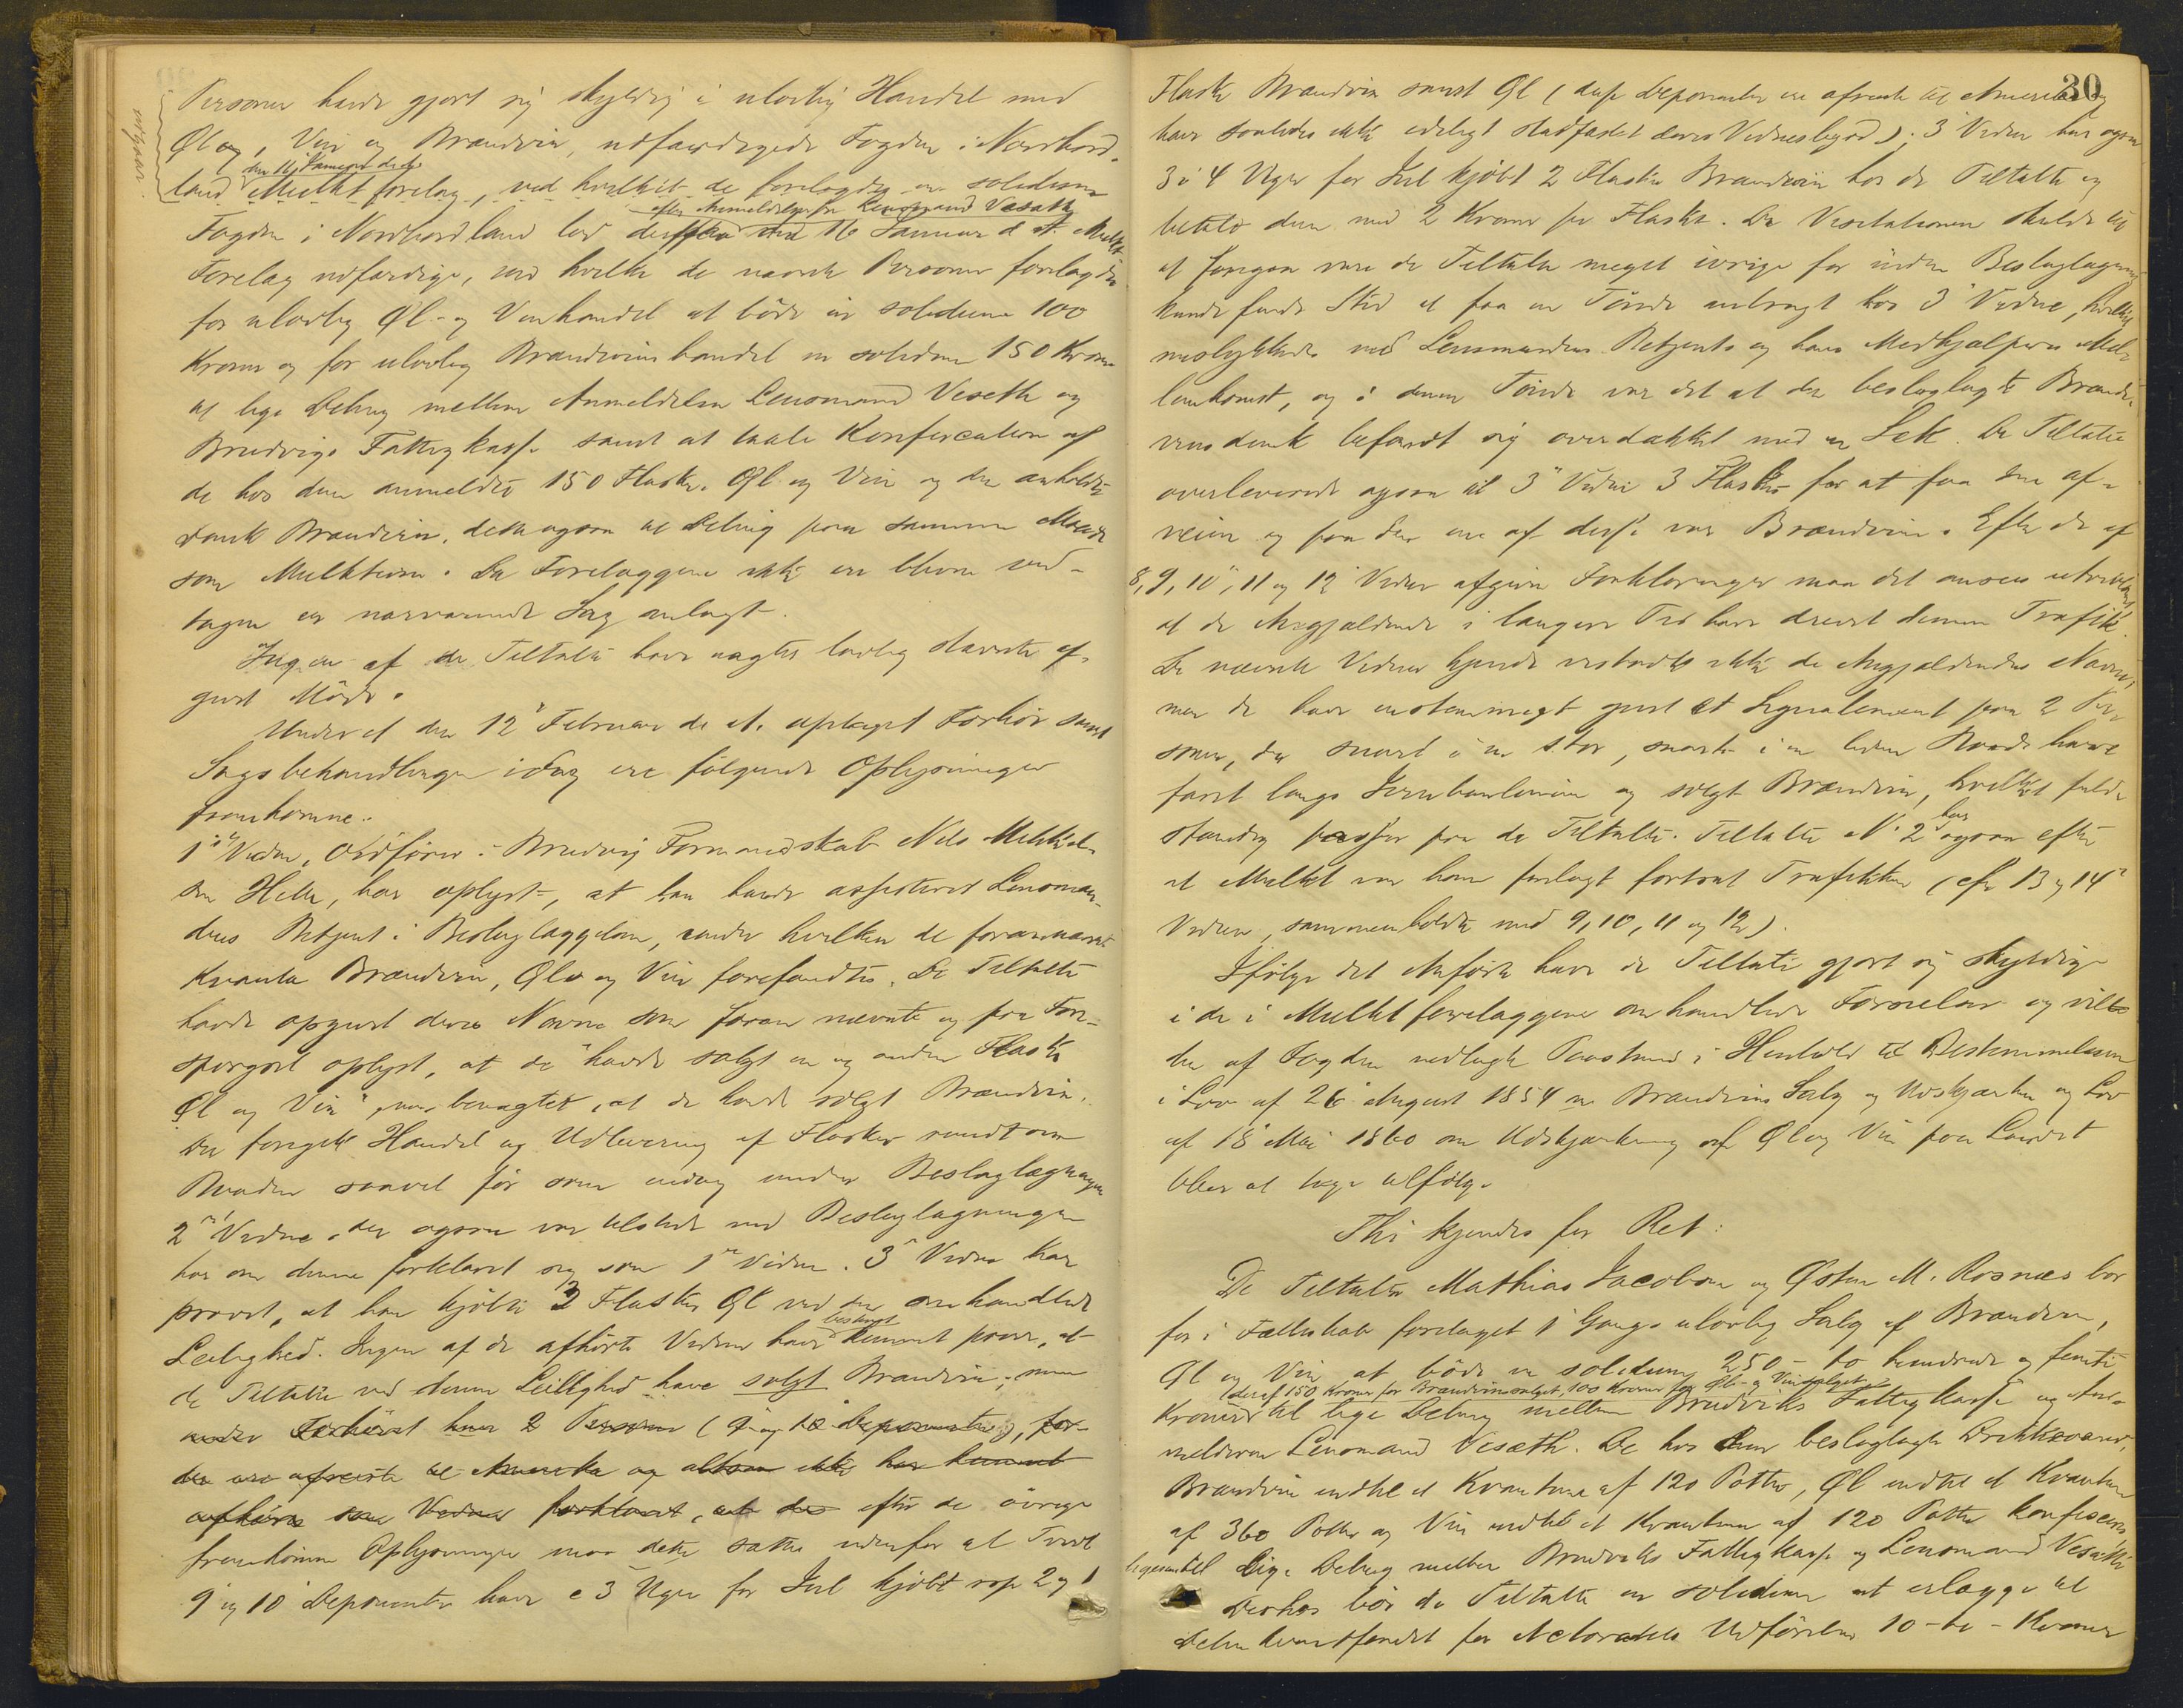 Personer havde gjort sig skyldig i ulovlig Handel med
Øl og, Vin og Brændevin, udfærdigede Fogden i Nordhord-
den 16 Januar d. A.
land Mulktforelæg, ved hvilket de forelagdes en solidum
efter Anmeldelse fra Lensmand Vesæth
Fogden i Nordhordland lod den 16 Januar d. A. Mulkt-
Forelæg udfærdige, ved hvilke de nævnte Personer forelagdes
for ulovlig Øl- og Vinhandel at bøde in solidum 100
Kroner og for ulovlig Brændevinshandel in solidum 150 Kroner
til lige Deling mellem Anmelderen Lensmand Vesæth og
Brudvigs Fattigkasse samt at taale Konfiscation af
de hos dem anmeldte 150 Flasker Øl og Vin og den anholdte
Dunk Brændevin, dette ogsaa til Deling paa samme Maade
som Mulkterne. Da Forelæggene ikke ere blevne ved-
tagne er nærværende Sag anlagt.
Ingen af de Tiltalte have nogter lovlig Stævnte af-
givet Møde.
Under et den 12 Februar d. A. optaget Forhør samt
Sagsbehandlingen idag ere følgende Oplysninger
fremkomne:
1ste Vidne, Ordfører i Bruvig Formandskab Nils Mikkel-
sen Helle, har oplyst, at han havde assisteret Lensman-
dens Betjent i Beslaglæggelsen, under hvilken de forannævnte
Kvanta Brændevin, Øl og Vin forefandtes. De Tiltalte
havde opgivet deres Navne som foran nævnte og paa Fore-
spørgsel oplyst, at de "havde solgt en og anden Flaske
Øl og Vin", men benægtet, at de havde solgt Brændevin.
Der foregik Handel og Udlevering af Flasker rundt om
Baaden saavel før som endog under Beslaglæggelsen
2det Vidne, der ogsaa var tilstede ved Beslaglæggelsen
har om denne forklaret sig som 1ste Vidne. 3die Vidne har
provet, at han kjøbte 2 Flasker Øl ved den omhandlede
bestemt
Leilighed. Ingen af de afhørte Vidner have kunnet prove, at
de Tiltalte ved denne Leilighed have solgt Brændevin; men
under Forhøret have 2 Personer (9 og 10 Deponenter), for-
der ere afreiste til Amerika og altsaa ikke har kunnet
afhøres som Vidner forklaret, at der efter de øvrige
fremkomne Oplysninger maa dette sættes udenfor al Tvivl
9 og 10 Deponenter have c 3 Uger før Jul kjøbt resp 2 og 1
30
Flaske Brændevin samt Øl (disse Deponenter ere afreiste til Amerika og
have saaledes ikke edeligt stadfæstet deres Vidnesbyrd); 3 Vidne har ogsaa
3 à 4 Uger før Jul kjøbt 2 Flasker Brændevin hos de Tiltalte og
betalt dem med 2 Kroner pr Flaske. Da Visitationen skulde til
at foregaa vare de Tiltalte meget ivrige for inden Beslaglægning
kunde finde Sted at faa en Tønde anbragt hos 3 Vidne, hvilket
mislykkedes ved Lensmandens Betjents og hans Medhjælperes Mel-
lemkomst, og i denne Tønde var det at den beslaglagte Brænde-
vinsdunk befandt sig overdækket med en Sæk. De Tiltalte
overleverede ogsaa til 3 Vidne 3 Flasker for at faa dem af-
veien og paa den ene af disse var Brændevin. Efter de af
8, 9, 10, 11 og 12 Vidner afgivne Forklaringer maa det ansees utvivlsomt
at de Angjældende i længere Tid have drevet denne Trafik.
De nævnte Vidner kjende vistnok ikke de Angjældendes Navne,
men de have enstemmigt givet et Signalement paa 2 Per-
soner, der snart i en stor, snart i en liden Baad have
faret langs Jernbanelinien og solgt Brændevin, hvilket fuld-
har
stændig passer paa de Tiltalte. Tiltalte No 2 ogsaa efter
at Mulkt var ham forelagt fortsat Trafikken (cfr 13 og 14
Vidner, sammenholdt med 9, 10, 11 og 12).
Ifølge det Anførte have de Tiltalte gjort sig skyldige
i de i Mulktforelæggene omhandlede Forseelser og vil
den af Fogden nedlagte Paastand i Henhold til Bestemmelserne
i Lov af 26 August 1854 om Brændevins Salg og Udskjænken og Lov
af 18 Mai 1860 om Udskjænkning af Øl og Vin paa Landet
blive at tage tilfølge.
Thi kjendes for Ret:
De Tiltalte Mathias Jacobsen og Østen M. Rosnæs bør
for i Fælleskab foretaget 1 Gangs ulovlig Salg af Brændevin,
Øl og Vin at bøde in solidum 250 - to hundrede og femti -
(deraf 150 Kroner for Brændevinssalget, 100 Kroner for Øl- og Vinsalget)
Kroner til lige Deling mellem Bruviks Fattigkasse og An-
melderen Lensmand Vesæth. De hos dem beslaglagte Drikkevarer,
Brændevin indtil et Kvantum af 120 Potter, Øl indtil et Kvantum
af 360 Potter og Vin indtil et Kvantum af 120 Potter konfiskeres
ligesaa til lige Deling mellem Bruviks Fattigkasse og Lensmand Vesæth
Derhos bør de Tiltalte in solidum at erlægge til
Delinkventfondet for Actoratets Udførelse 10 - ti - Kroner